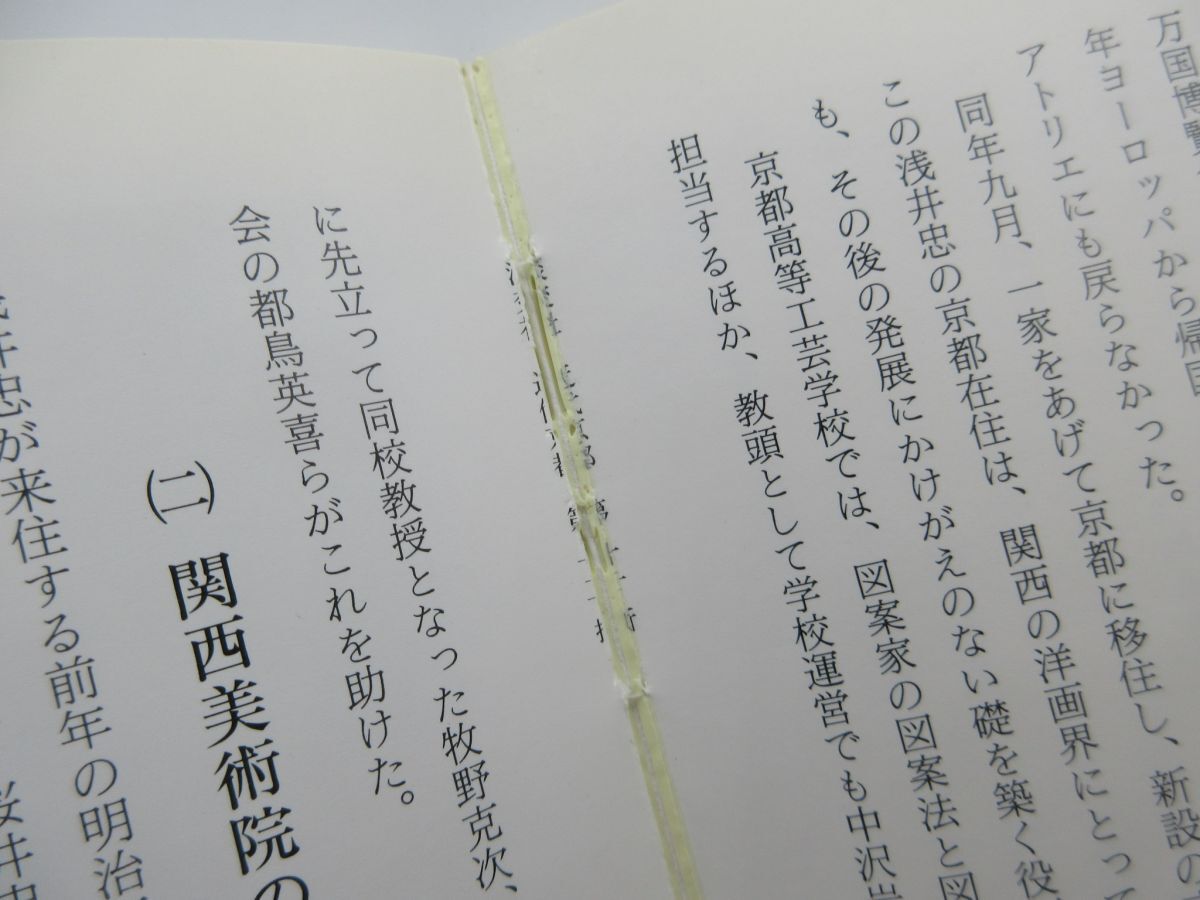 万国博覧
年ヨーロッパから帰国
アトリエにも戻らなかった。
同年九月、一家をあげて京都に移住し、新設の
この浅井忠の京都在住は、関西の洋画界にとって
も、その後の発展にかけがえのない礎を築く役
京都高等工芸学校では、図案家の図案法と図
担当するほか、教頭として学校運営でも中沢岩
に先立って同校教授となった牧野克次、
会の都鳥英喜らがこれを助けた。
(二) 関西美術院の
井忠が来住する前年の明治
桜井忠